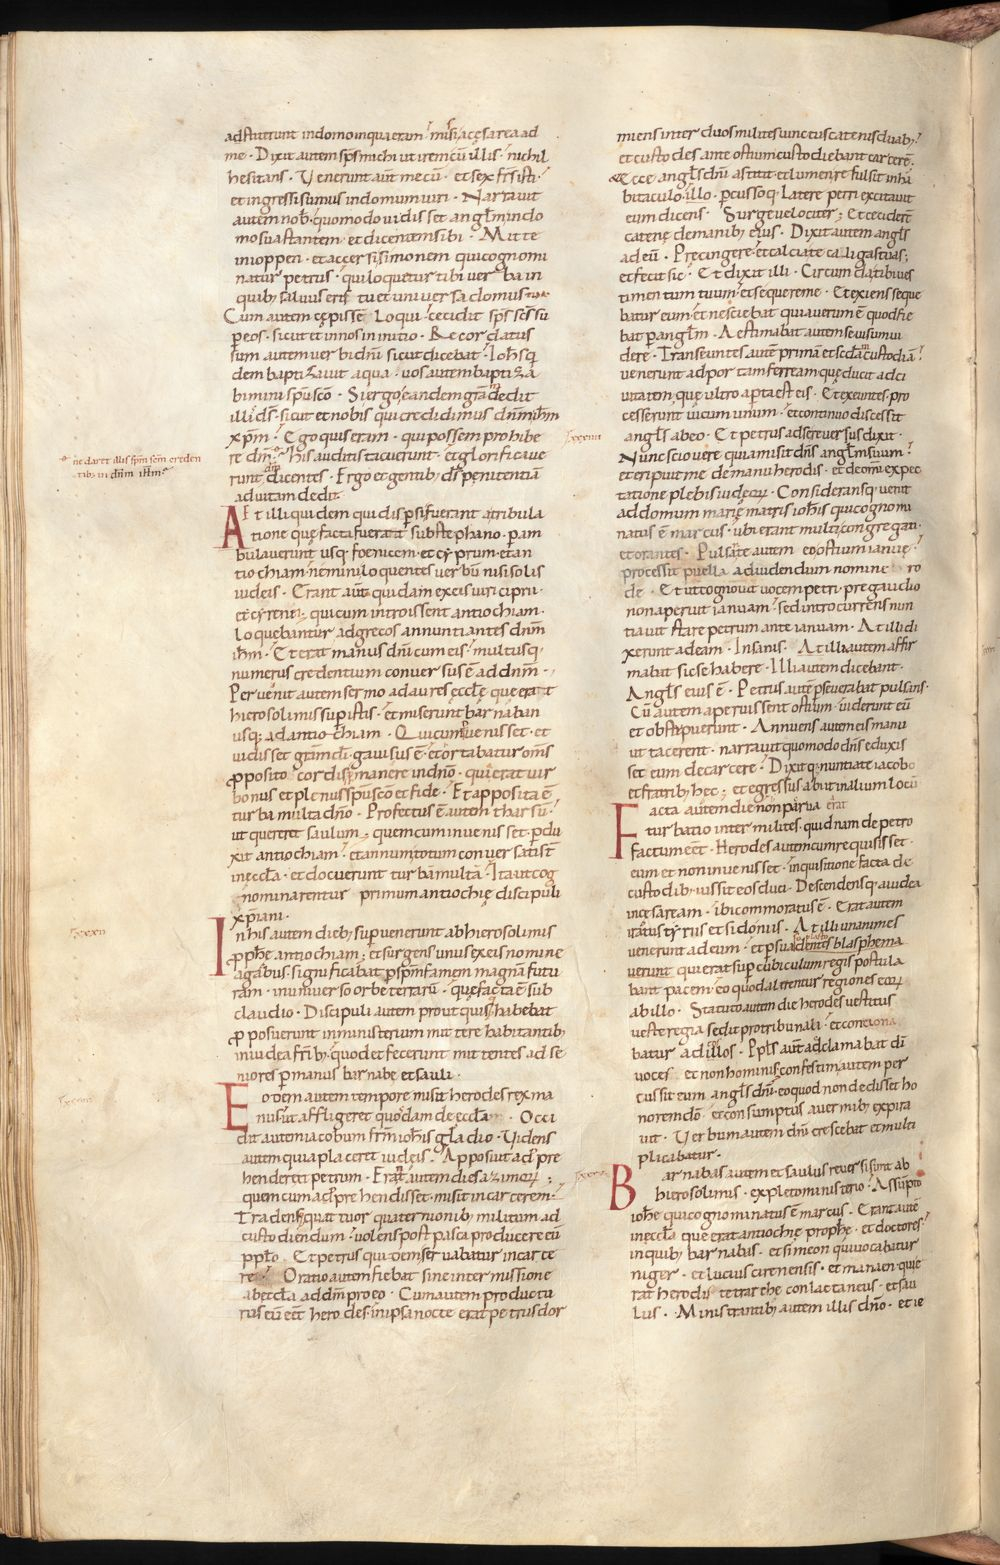 adstiterunt in domo in qua eram missi a cęsarea ad
me · Dixit autem sp̄s michi ut irem cū illis · nichil
hesitans · Venerunt aūt mecū · et sex fr̄s isti ·
et ingressi sumus in domum uiri · Narrauit
autem nob̄ · quomodo uidisset angl̄m in do
mo sua stantem et dicentem sibi · Mitte
in ioppen · et accersi simonem qui cognomi
natur petrus · qui loquetur tibi uerba in
quib; saluus eris tu et uniuersa domus tua
Cum autem cępissē loqui · cecidit sp̄s sc̄s su
ꝑ eos · sicut et in nos in initio · Recordatus
sum autem uerbi dn̄i sicut dicebat · Ioh̄s q̇
dem baptizauit aqua · uos autem baptizā
bimini sp̄u sc̄o · Si ergo eandem grām dedit
illi d̄s · sicut et nobis qui credidimus dn̄m ih̄m
xp̄m · Ego quis eram · qui possem prohibe
re dm̄ · His auditis tacuerunt · et glorificaue
runt dm̄ dicentes · Ergo et gentib; d̄s pęnitentiā
ad uitam dedit
ne daret illis sp̄m sc̄m creden
tib; in dn̄m ih̄m
Et illi quidem qui disꝑsi fuerant a tribula
tione quę facta fuerat sub stephano · ꝑam
bulauerunt usq; foenicem · et cyprum · et an
tiochiam · nemini loquentes uerbū nisi solis
iudeis · Erant aūt quidam ex eis uiri cipri ·
et cyrenei · qui cum introissent antiochiam ·
loquebantur ad grecos annuntiantes dn̄m
ih̄m · Et erat manus dn̄i cum eis · multusq;
numerus credentium conuersus ē ad dn̄m ·
Peruenit autem sermo ad aures ęccl̄ę que erat
hierosolimis sup istis · et miserunt barnaban
usq; ad antiochiam · Qui cum ꝑuenisset · et
uidisset grām d̄i · gauisus ē · et ortabatur om̄s
ꝓposito cordis ꝑmanere in dn̄o · quia erat uir
bonus et plenus sp̄u sc̄o et fide · Et apposita ē
turba multa dn̄o · Profectus ē autem tharsū ·
ut quereret saulum · quem cum inuenisset · ꝑdu
xit antiochiam · et annum totum conuersati s̄t
in ęccl̄a · et docuerunt turbam multā · Ita ut cog
nominarentur primum antiochię discipuli
xp̄iani ·
xxxii
In his autem dieb; supuenerunt ab hierosolimis
ꝓph̄e antiochiam · et surgens unus ex eis nomine
agabus · significabat ꝑ sp̄m famem magnā futu
ram · in uniuerso orbe terrarū · quę facta ē sub
claudio · Discipuli autem prout quisq; habebat
ꝓposuerunt in ministerium mittere habitantib;
in iudea fr̄ib; · quod et fecerunt mittentes ad se
niores ꝑ manus barnabę et sauli ·
Eodem autem tempore misit herodes rex ma
nus · ut affligeret quosdam de eccl̄a · Occi
dit autem iacobum frm̄ ioh̄is gladio · Videns
autem quia placeret iudeis · Apposuit adpre
hendere et petrum · Erat autem dies azimoꝝ ·
quem cum adprehendisset · misit in carcerem ·
Tradens quattuor quaternionib; militum ad
custodiendum · uolens post pasca producere eū
pp̄lo · Et petrus quidem seruabatur in carce
re · Oratio autem fiebat sine intermissione
ab eccl̄a ad dm̄ pro eo · Cum autem productu
rus eū eēt herodes · in ipsa nocte erat petrus dor
miens inter duos milites uinctus catenis duab;
et custodes ante ostium custodiebant carcerē ·
Et ecce angl̄s dn̄i astitit · et lumen refulsit in ha
bitaculo illo · ꝑcussoq; latere petri excitauit
eum dicens · Surge uelociter · Et cecider̄
catenę de manib; eius · Dixit autem angl̄s
ad eū · Precingere · et calciate caligas tuas ·
et fecit sic · Et dixit illi · Circumda tibi ues
timentum tuum · et sequere me · Et exiens seque
batur eum · et nesciebat quia uerum ē quod fie
bat ꝑ angl̄m · Aestimabat autem se uisum ui
dere · Transeuntes autē primā et sc̄dam custodiā ·
uenerunt ad portam ferream quę ducit ad ci
uitatem · que ultro aperta est eis · Et exeuntes pro
cesserunt uicum unum · et continuo discessit
xxxiii
angl̄s ab eo · Et petrus ad se reuersus dixit ·
Nunc scio uere quia misit dn̄s angl̄m suum ·
et eripuit me de manu herodis · et de om̄i expec
tatione plebis iudeoꝝ · Consideransq; uenit
ad domum marię matris ioh̄is qui cognomi
natus ē marcus · ubi erant multi congregati ·
et orantes · Pulsante autem eo ostium ianuę ·
processit puella ad uidendum nomine ro
de · Et ut cognouit uocem petri · pre gaudio
non aperuit ianuam · sed intro currens nun
tiauit stare petrum ante ianuam · At illi di
xerunt ad eam · Insanis · At illa autem affir
mabat sic se habere · Illi autem dicebant ·
Angl̄s eius ē · Petrus autē ꝑseuerabat pulsans ·
Cū autem aperuissent ostium · uiderunt eū
et obstipuerunt · Annuens autem eis manu
ut tacerent · narrauit quomodo dn̄s eduxis
set eum de carcere · Dixitq; nuntiate iacobo
et fratrib; hec · et egressus abiit in alium locū
Facta autem die non parua erat
turbatio inter milites · quidnam de petro
factum eēt · Herodes autem cum requisisset ·
eum et non inuenisset · inquisitione facta de
custodib; · iussit eos duci · Descendensq; a iudea
in cęsaream · ibi commoratus ē · Erat autem
iratus tyriis et sidoniis · At illi unanimes
uenerunt ad eum · et persuadentes blasphema
uerunt qui erat sup cubiculum regis postula
bant pacem · eo quod alerentur regiones eoꝝ
ab illo · Statuto autem die herodes uestitus
ueste regia sedit pro tribunali · et conciona
batur ad illos · Ppl̄s aūt adclamabat d̄i
uoces et non hominis · confestim autem per
cussit eum angl̄s dn̄i · eo quod non dedisset ho
norem dō · et consumptus a uermib; expira
uit · Verbum autem dn̄i crescebat et multi
plicabatur ·
Barnabas autem et saulus reuersi sunt ab
hierosolimis · expleto ministerio · Assūpto
ioh̄e qui cognominatus ē marcus · Erant autē
in eccl̄a que erat antiochię prophe · et doctores
in quib; barnabas · et simeon qui uocabatur
niger · et lucius cirenensis · et manaen qui e
rat herodis tetrarche conlactaneus · et sau
lus · Ministrantib; autem illis dn̄o · et ie